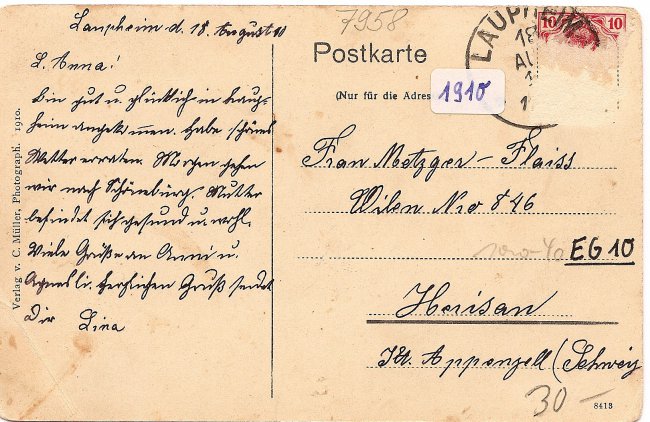 Laupheim d. 18. August 10
L. Anna!
Bin gut u. glücklich in Laup-
heim angekommen. Habe schönes
Wetter erraten. Morgen gehen
wir nach Schönebürg. Mutter
befindet sich gesund u. wohl.
Viele Grüße an Anni u.
Agnesli. Herzlichen Gruß sendet
Dir Lina
Verlag v. C. Müller, Photograph. 1910.
7958
Postkarte
(Nur für die Adres
1910
LAUPHEIM
18
AU
10 10
Frau Metzger-Flaiss
Wilen Nro 846
EG 10
Herisau
Kt. Appenzell (Schweiz
30-
8413